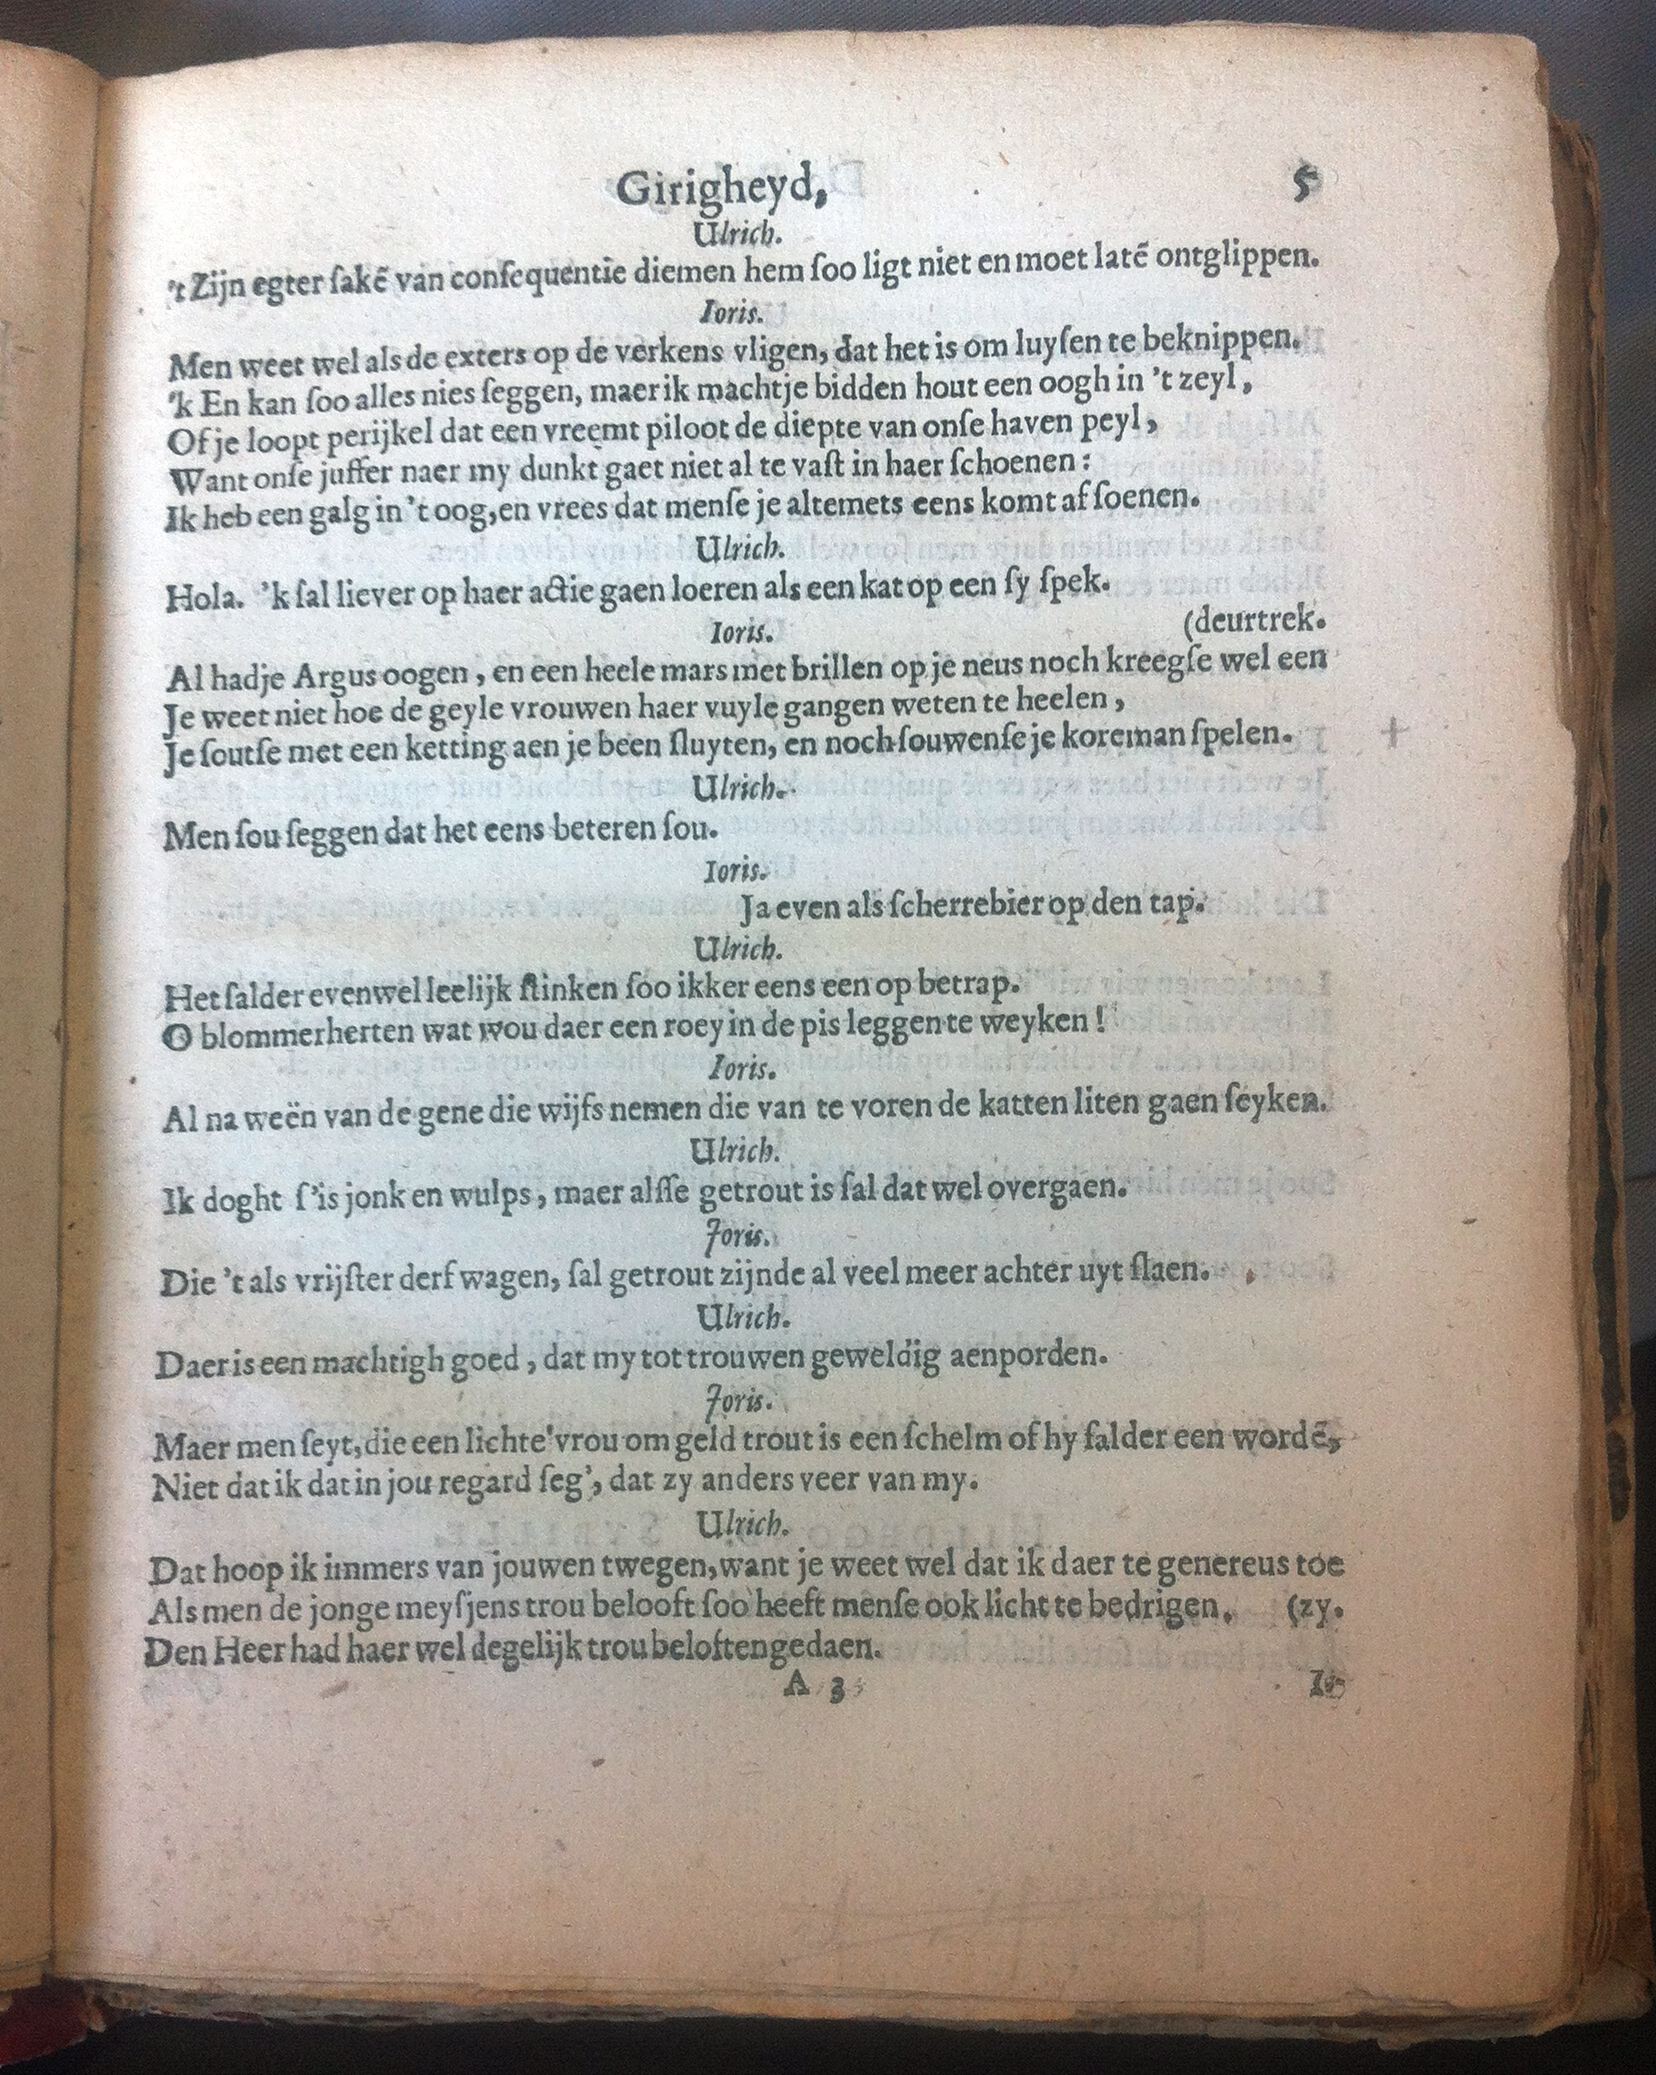 Girigheyd, 5
Ulrich.
't Zijn egter ſakē van conſequentie diemen hem ſoo ligt niet en moet latē ontglippen.
Ioris.
Men weet wel als de exters op de verkens vligen, dat het is om luyſen te beknippen.
'k En kan ſoo alles nies ſeggen, maer ik machtje bidden hout een oogh in 't zeyl,
Of je loopt perijkel dat een vreemt piloot de diepte van onſe haven peyl,
Want onſe juffer naer my dunkt gaet niet al te vaſt in haer ſchoenen:
Ik heb een galg in 't oog, en vrees dat menſe je altemets eens komt af ſoenen.
Ulrich.
Hola. 'k ſal liever op haer actie gaen loeren als een kat op een ſy ſpek.
Ioris. (deurtrek.
Al hadje Argus oogen, en een heele mars met brillen op je neus noch kreegſe wel een
Je weet niet hoe de geyle vrouwen haer vuyle gangen weten te heelen,
Je ſoutſe met een ketting aen je been ſluyten, en noch ſouwenſe je koreman ſpelen. +
Ulrich.
Men ſou ſeggen dat het eens beteren ſou.
Ioris.
Ja even als ſcherrebier op den tap.
Ulrich.
Het ſalder evenwel leelijk ſtinken ſoo ikker eens een op betrap.
O blommerherten wat wou daer een roey in de pis leggen te weyken!
Ioris.
Al na weën van de gene die wijfs nemen die van te voren de katten liten gaen ſeyken.
Ulrich.
Ik doght ſ'is jonk en wulps, maer alſſe getrout is ſal dat wel overgaen.
Joris.
Die 't als vrijſter derf wagen, ſal getrout zijnde al veel meer achter uyt ſlaen.
Ulrich.
Daer is een machtigh goed, dat my tot trouwen geweldig aenporden.
Joris.
Maer men ſeyt, die een lichte vrou om geld trout is een ſchelm of hy ſalder een wordē,
Niet dat ik dat in jou regard ſeg', dat zy anders veer van my.
Ulrich.
Dat hoop ik immers van jouwen twegen, want je weet wel dat ik daer te genereus toe
Als men de jonge meyſjens trou belooft ſoo heeft menſe ook licht te bedrigen. (zy.
Den Heer had haer wel degelijk trou beloften gedaen.
A 3 I.